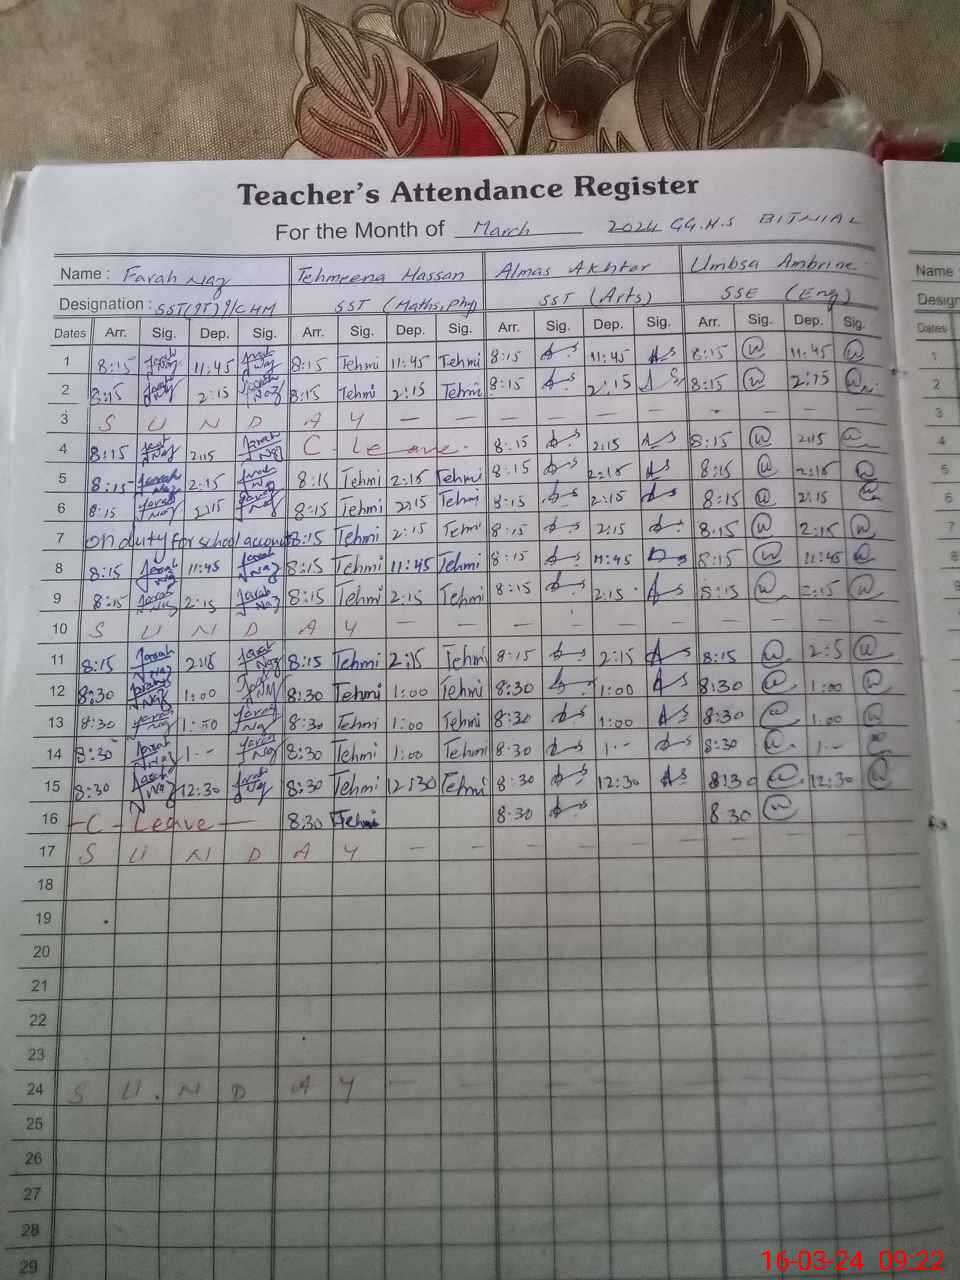 Teacher's Attendance Register
For the Month of March 2024 GG.H.S BITNIAL
Name : Farah Naz Tehmeena Hassan Almas Akhtar Umbsa Ambrine
Designation : SST(IT) I/C HM SST (Maths, Phy) SST (Arts) SSE (Eng)
Dates Arr. Sig. Dep. Sig. Arr. Sig. Dep. Sig. Arr. Sig. Dep. Sig. Arr. Sig. Dep. Sig.
1 8:15 Farah Naz 11:45 Farah Naz 8:15 Tehmi 11:45 Tehmi 8:15 11:45 As 8:15 11:45
2 8:15 Farah Naz 2:15 Farah Naz 8:15 Tehmi 2:15 Tehmi 8:15 2:15 8:15 2:15
3 S U N D A Y — —
4 8:15 Farah Naz 2:15 Farah Naz C- Leave. 8:15 2:15 As 8:15 2:15
5 8:15 Farah Naz 2:15 Farah Naz 8:15 Tehmi 2:15 Tehmi 8:15 2:15 As 8:15 2:15
6 8:15 Farah Naz 2:15 Farah Naz 8:15 Tehmi 2:15 Tehmi 8:15 2:15 8:15 2:15
7 on duty for school account 8:15 Tehmi 2:15 Tehmi 8:15 2:15 8:15 2:15
8 8:15 Farah Naz 11:45 Farah Naz 8:15 Tehmi 11:45 Tehmi 8:15 11:45 8:15 11:45
9 8:15 Farah Naz 2:15 Farah Naz 8:15 Tehmi 2:15 Tehmi 8:15 2:15 As 8:15 2:15
10 S U N D A Y — —
11 8:15 Farah Naz 2:15 Farah Naz 8:15 Tehmi 2:15 Tehmi 8:15 2:15 As 8:15 2:5
12 8:30 Farah Naz 1:00 8:30 Tehmi 1:00 Tehmi 8:30 1:00 As 8:30 1:00
13 8:30 Farah Naz 1:00 Farah Naz 8:30 Tehmi 1:00 Tehmi 8:30 1:00 As 8:30 1:00
14 8:30 Farah Naz 1:- Farah Naz 8:30 Tehmi 1:00 Tehmi 8:30 1:- 8:30 1:-
15 8:30 Farah Naz 12:30 Farah Naz 8:30 Tehmi 12:30 Tehmi 8:30 12:30 As 8:30 12:30
16 -C- Leave — 8:30 Tehmi 8:30 8:30
17 S U N D A Y — —
18
19
20
21
22
23
24 S U N D A Y — —
25
26
27
28
29
Name
Design
Dates
1
2
3
4
5
6
7
8
9
16-03-24 09:22